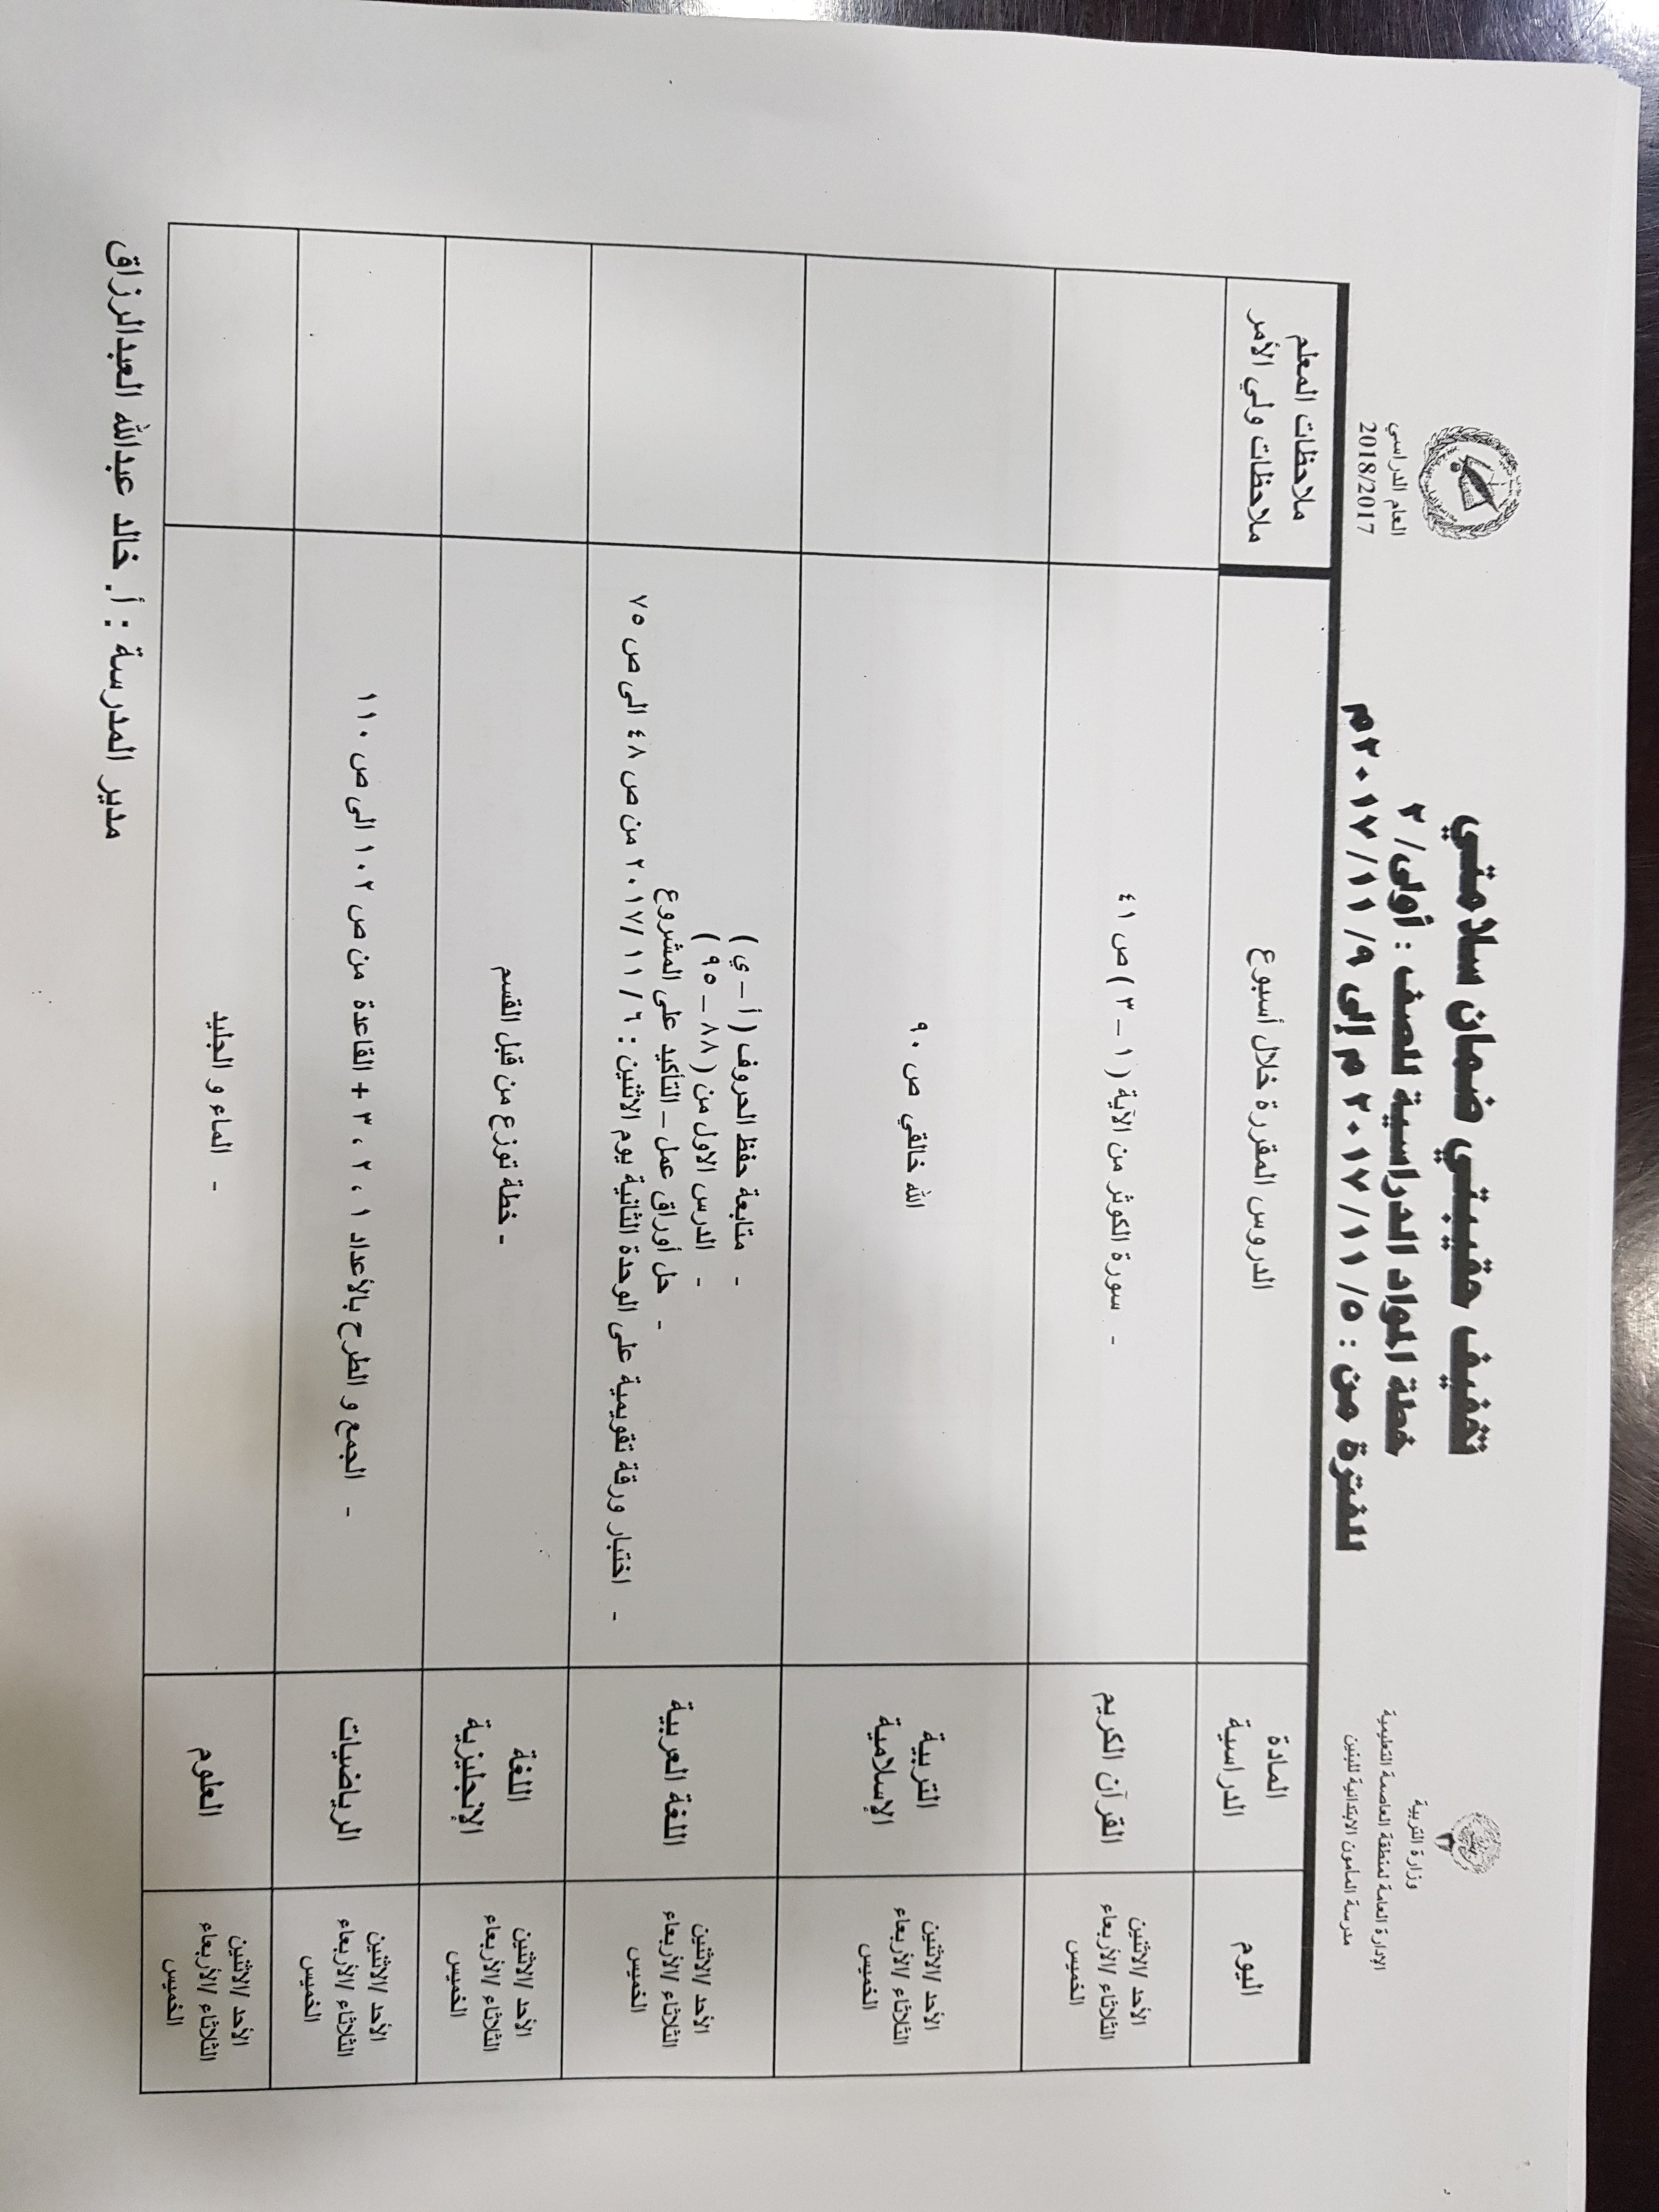 وزارة التربية
الإدارة العامة لمنطقة العاصمة التعليمية
مدرسة المأمون الابتدائية للبنين
تخفيف حقيبتي ضمان سلامتي
خطة المواد الدراسية للصف : أولى/ ٢
للفترة من : ٥ /٢٠١٧/١١ م إلى ٩ /٢٠١٧/١١م
العام الدراسي
2018/2017
اليوم
المادة
الدراسية
الدروس المقررة خلال أسبوع
ملاحظات المعلم
ملاحظات ولي الأمر
الأحد /الاثنين
الثلاثاء /الأربعاء
الخميس
القرآن الكريم
- سورة الكوثر من الآية ( ١ – ٣ ) ص ٤١
الأحد /الاثنين
الثلاثاء /الأربعاء
الخميس
التربية
الإسلامية
الله خالقي ص ٩٠
الأحد /الاثنين
الثلاثاء /الأربعاء
الخميس
اللغة العربية
- متابعة حفظ الحروف ( أ – ي )
- الدرس الاول من ( ٨٨ – ٩٥ )
- حل أوراق عمل – التأكيد على المشروع
- اختبار ورقة تقويمية على الوحدة الثانية يوم الاثنين : ٦ / ١١ /٢٠١٧ من ص ٤٨ الى ص ٧٥
الأحد /الاثنين
الثلاثاء /الأربعاء
الخميس
اللغة
الإنجليزية
- خطة توزع من قبل القسم
الأحد /الاثنين
الثلاثاء /الأربعاء
الخميس
الرياضيات
- الجمع و الطرح بالأعداد ١ ، ٢ ، ٣ + القاعدة من ص ١٠٢ الى ص ١١٠
الأحد /الاثنين
الثلاثاء /الأربعاء
الخميس
العلوم
- الماء و الجليد
مدير المدرسة : أ. خالد عبدالله العبدالرزاق